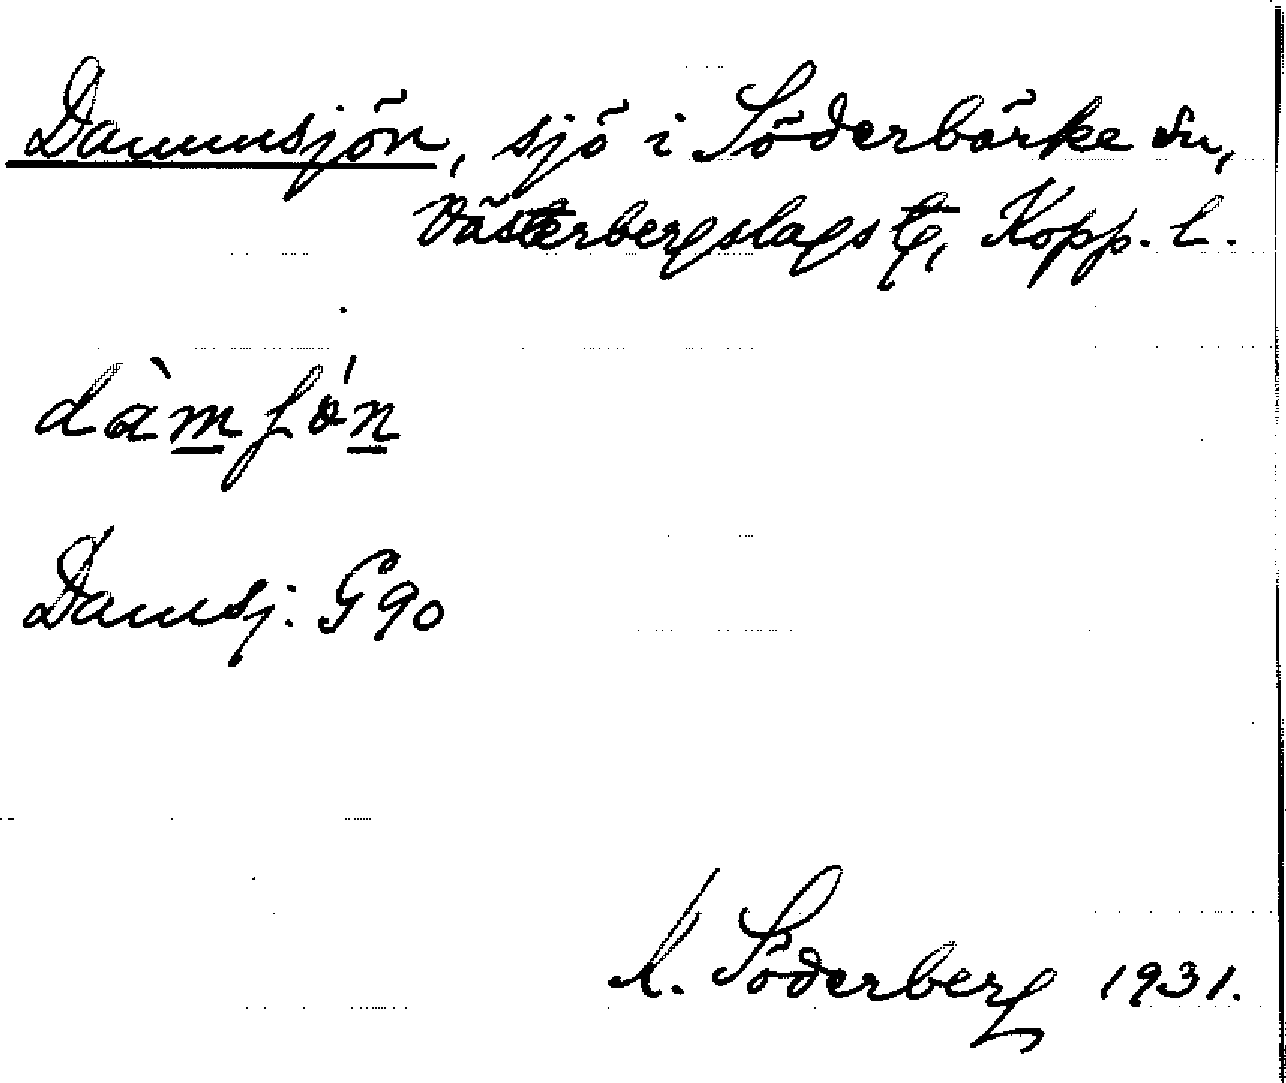 Dammsjön, sjö i Söderbärke sn,
Västerbergslags tg, Kopp. l.
dàmʃón
Damsj. G 90
A. Söderberg 1931.